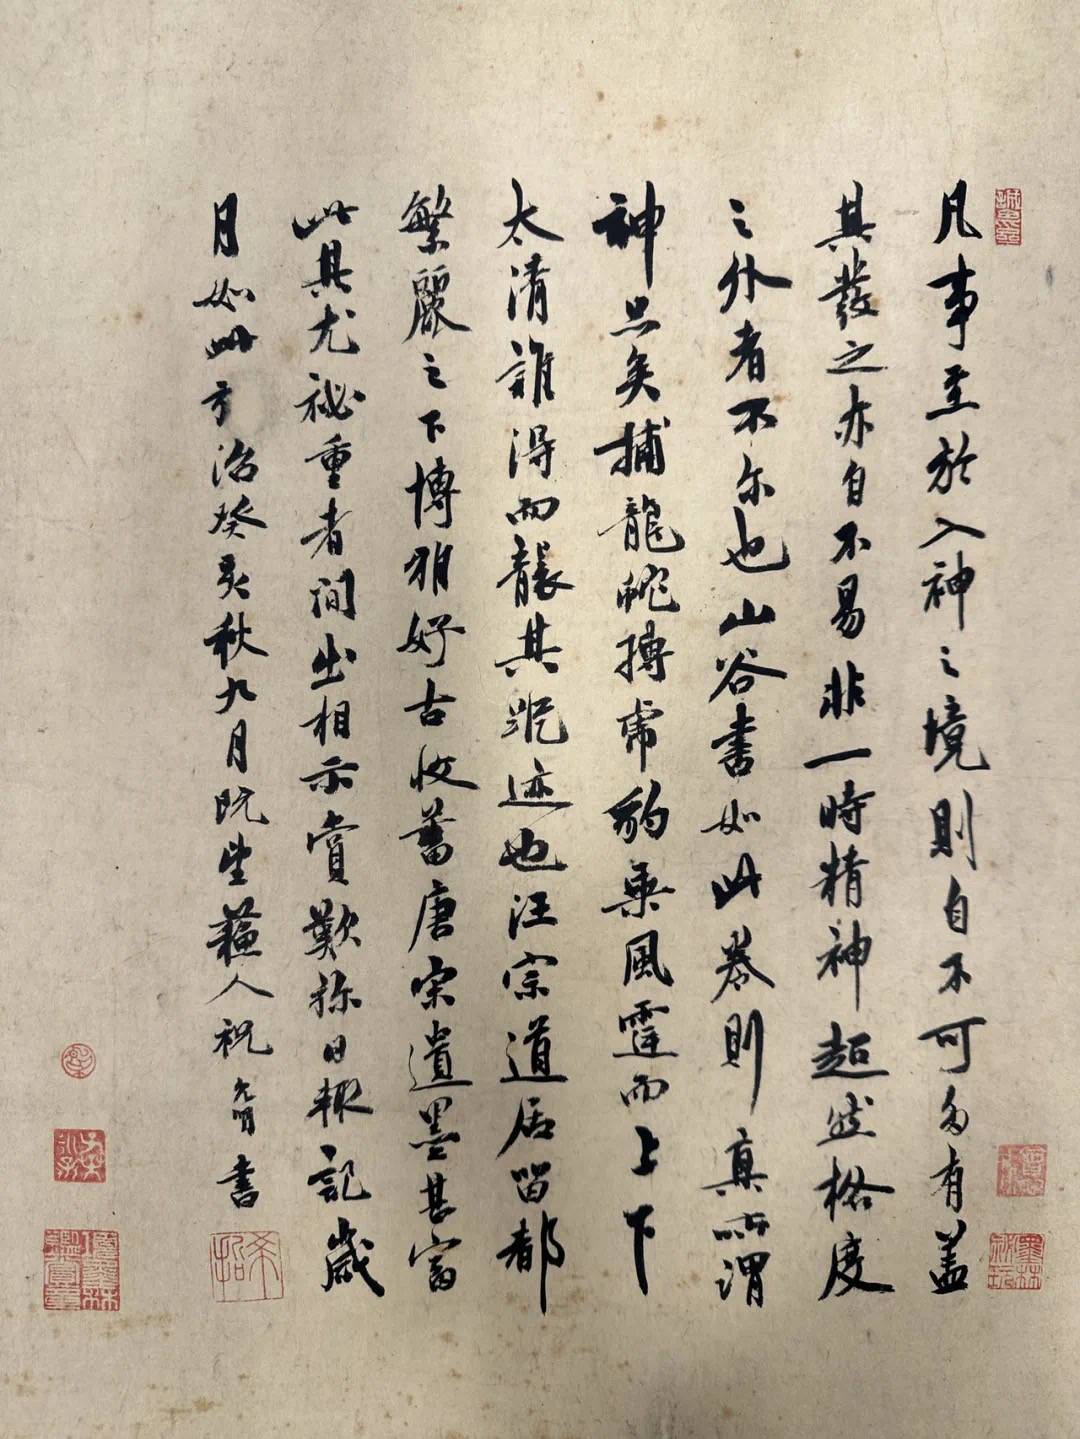 凡事至於入神之境則自不可多有盖
其發之亦自不易非一時精神超然格度
之外者不尔也山谷書如此卷則真所謂
神品矣捕龍蛇搏虎豹乘風霆而上下
太清誰得而襲其踪迹也汪宗道居留都
繁麗之下博雅好古收蓄唐宋遺墨甚富
此其尤祕重者間出相示賞歎弥日輙記歲
月如此弘治癸亥秋九月既望蘓人祝允明書